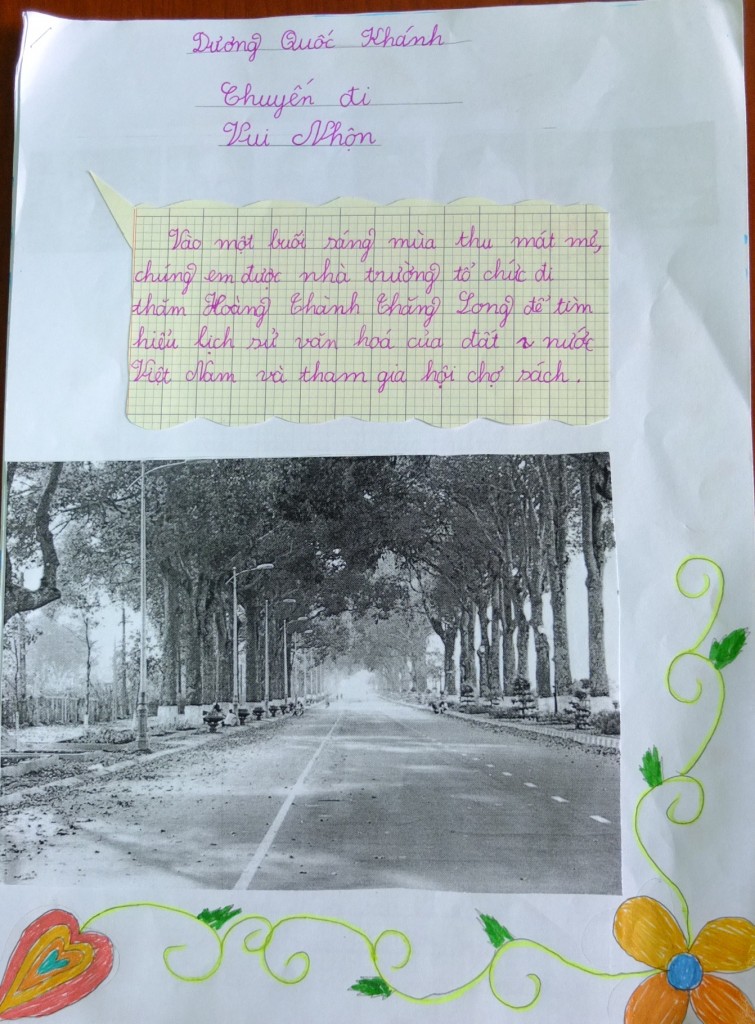 Dương Quốc Khánh
Chuyến đi
Vui Nhộn
Vào một buổi sáng mùa thu mát mẻ,
chúng em được nhà trường tổ chức đi
thăm Hoàng Thành Thăng Long để tìm
hiểu lịch sử văn hoá của đất nước
Việt Nam và tham gia hội chợ sách.